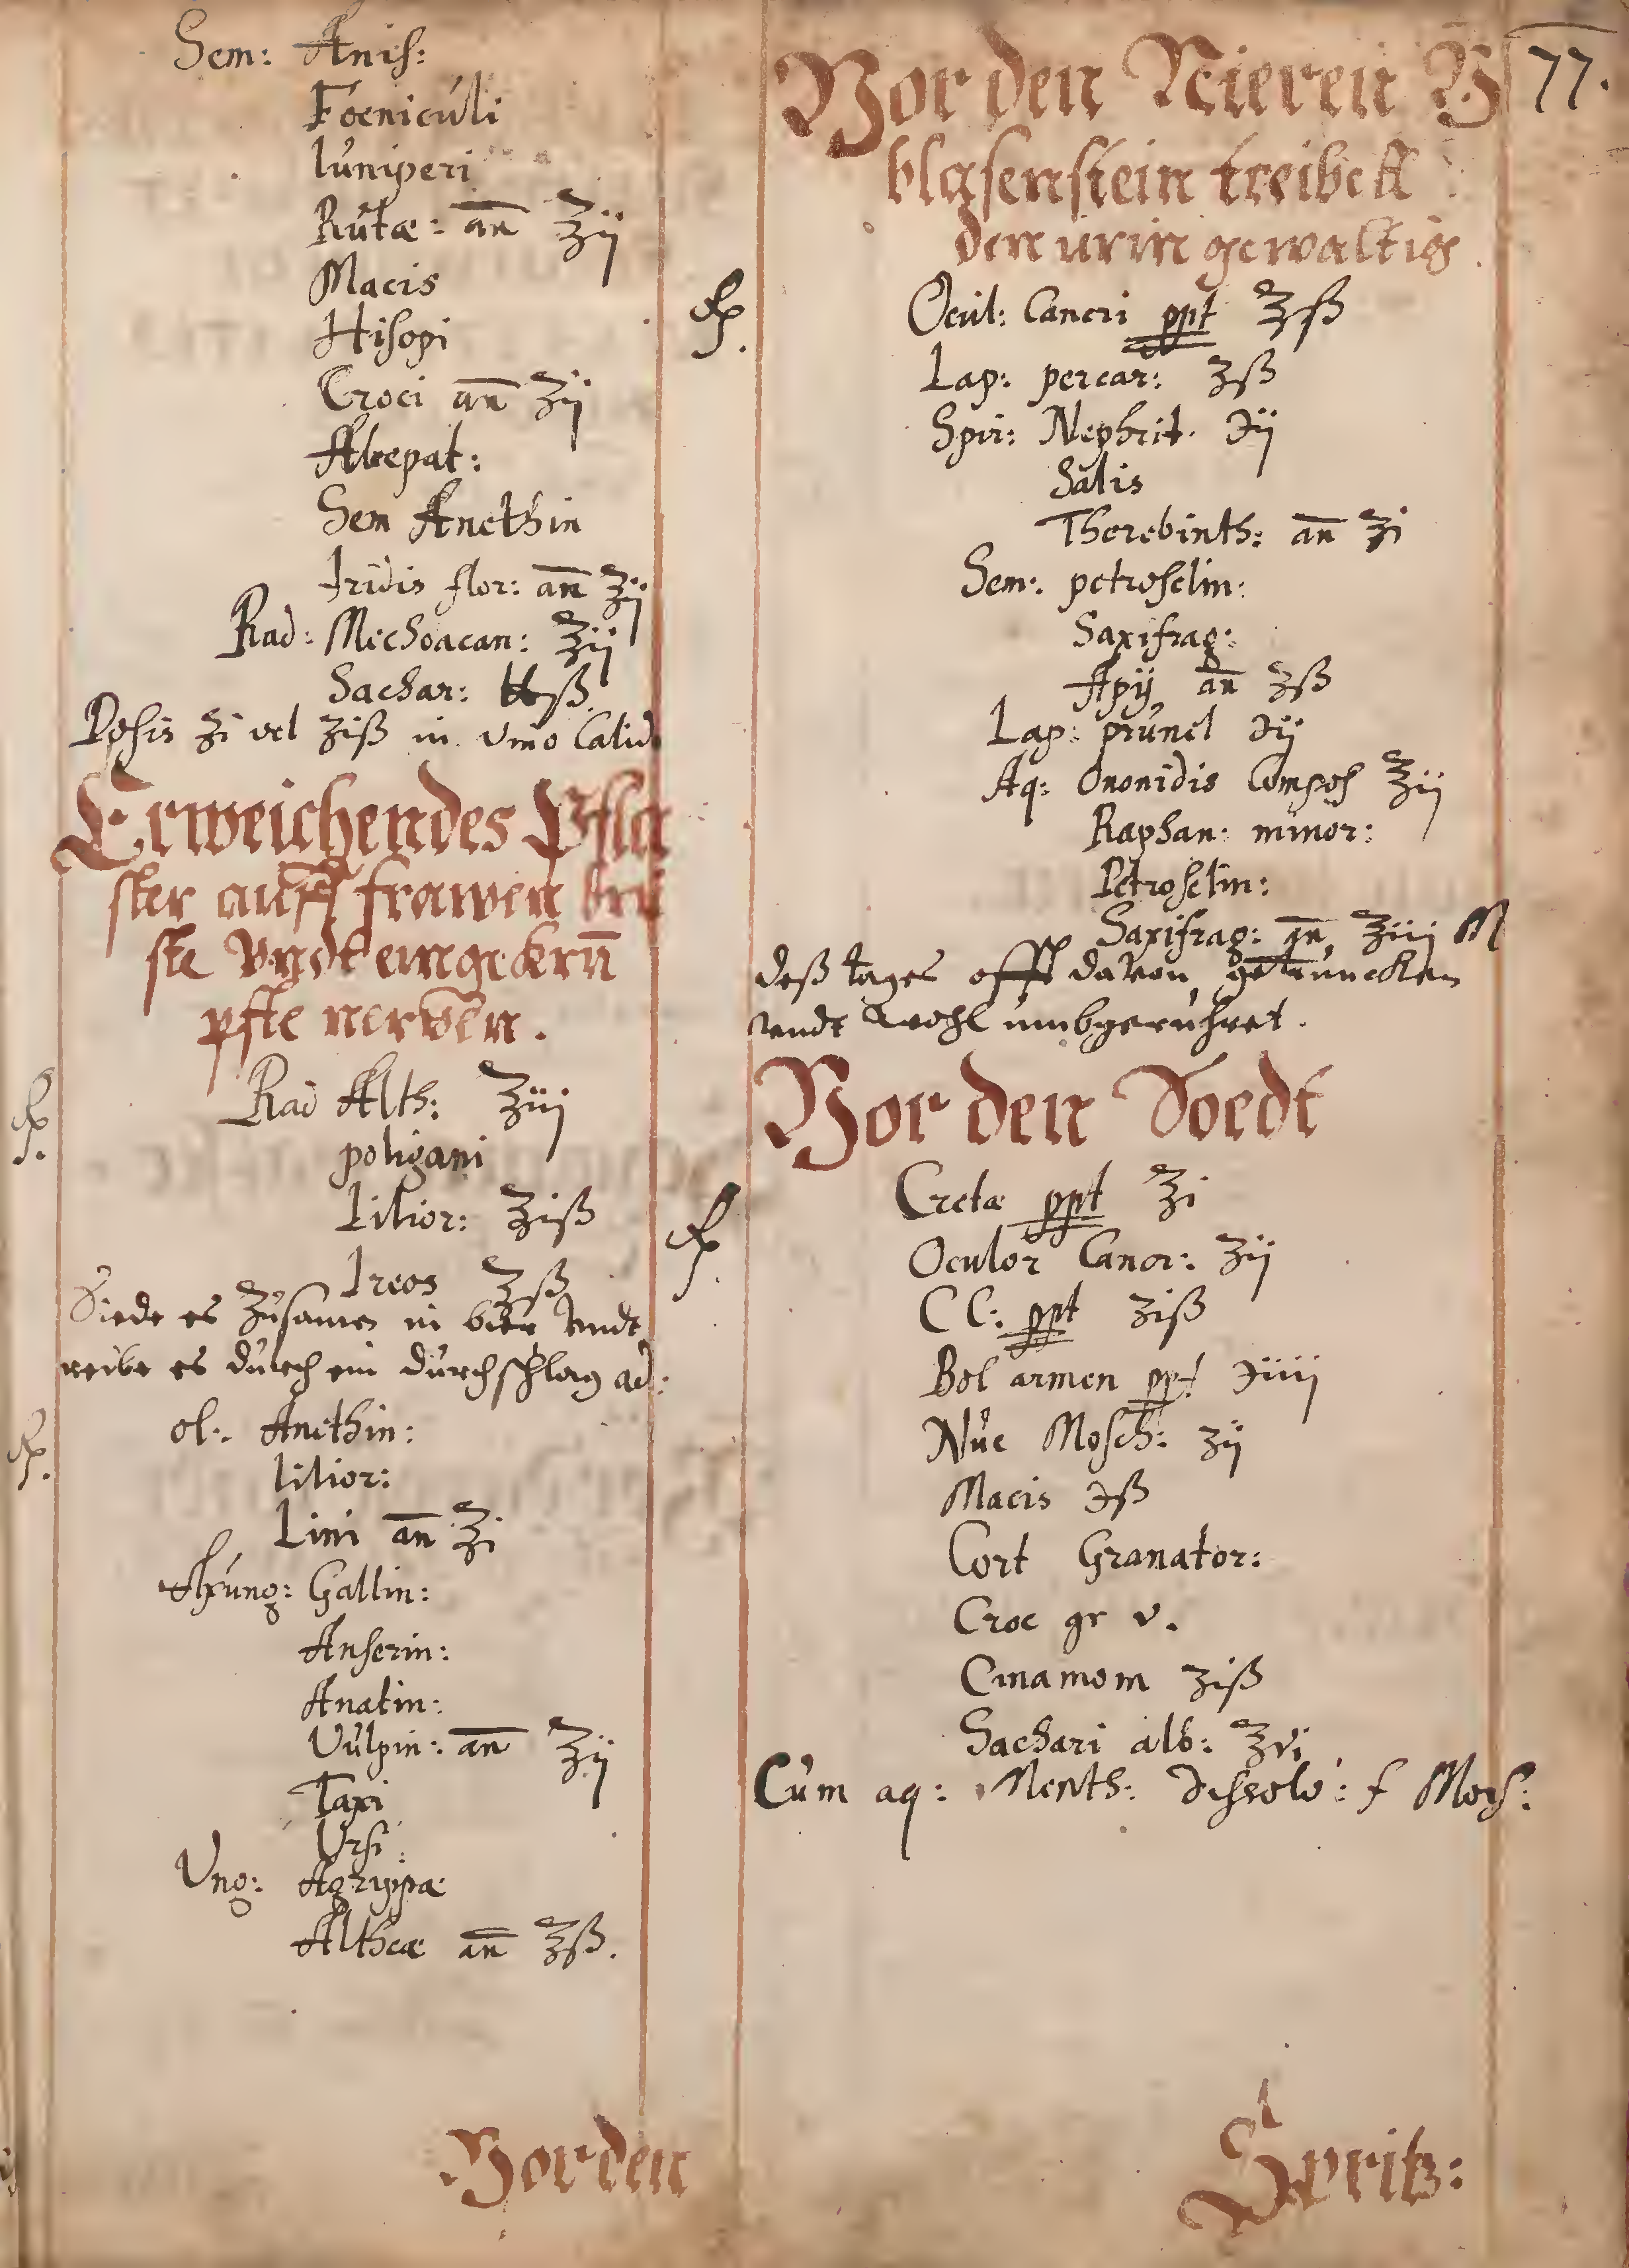 Sem: Anis:
Foeniculi
Iuniperi
Rutæ: an̄ ℥ij
Macis
Hisopi
Croci an̄ ʒij
Sem Anethin
Iridis flor: an̄ ʒij
Rad: Mechoacan: ℥ij
Sachar: ℔ß.
Dosis ʒi vel ʒiß in vino Calid
Erweichendes Pfla
ster auff frawen brü
ste Vndt eingekrū
pfte nerven.
℞. Rad Alth: ℥iij
poligani
Lilior: ℥iß
Ireos ℥ß
Siede es zusamen in bier vndt
reibe es durch ein durchschlag ad:
℞. ol: Anethin:
lilior:
Lini an̄ ℥i
Axung: Gallin:
Anserin:
Anatin:
Vulpin: an̄ ℥ij
Taxi
Ursi
Ung: Agrippæ
Altheæ an̄ ℥ß.
Vor den
77.
Vor den Nieren V
blasenstein treibett
den urin gewaltig.
℞. Ocul: Cancri ppt ℥ß
Lap: percar: ʒß
Spir: Nephrit. ℈ij
Salis
Therebinth: an̄ ʒi
Sem: petroselin:
Saxifrag:
Apij an̄ ʒß
Lap: prunel ℈ij
Aq: Ononidis Compos ℥ij
Raphan: minor:
Petroselin:
Saxifrag: an̄ ℥iij M
deß tages offt davon getruncken
vndt wohl umbgerühret.
Vor den Soedt
℞. Cretæ ppt ℥i
Oculor Cancr: ʒij
CC: ppt ʒiß
Bol armen ppt ℈iiij
Nuc Mosch: ʒij
Macis ℈ß
Cort Granator:
Croc gr v.
Cinamom ʒiß
Sachari alb: ℥vi
Cum aq: Menth: dissolv: f Mors:
Spritz: